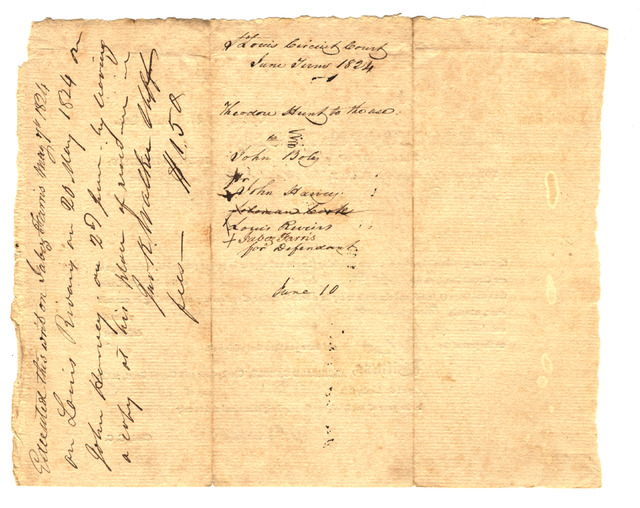 St Louis Circuit Court
June Term 1824
Theodore Hunt to the use
vs
John Boly
for
John Harvey
Louis Riviers
Jabez Ferris
for Defendant
June 10
Executed this writ on Jabez Ferris May 7th 1824
on Louis Rivars on 20 May 1824 on
John Harvey on 2d June by leaving
a copy at his place of residence
Jno K. Walker Shff
fees — $1.50